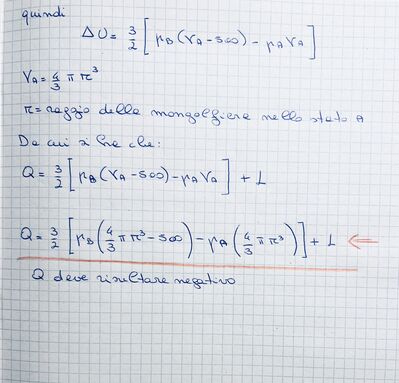 quindi
ΔU = 3/2 [ pB (VA - 500) - pA VA ]
VA = 4/3 π r³
r = raggio della mongolfiera nello stato A
Da cui si ha che:
Q = 3/2 [ pB (VA - 500) - pA VA ] + L
Q = 3/2 [ pB ( 4/3 π r³ - 500 ) - pA ( 4/3 π r³ ) ] + L ⇐
Q deve risultare negativo